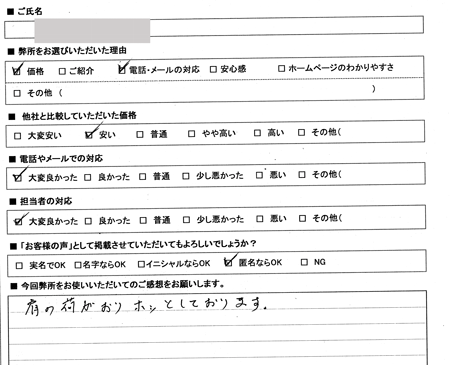 ■ ご氏名
■ 弊所をお選びいただいた理由
☑ 価格 □ ご紹介 ☑ 電話・メールの対応 □ 安心感 □ ホームページのわかりやすさ
□ その他 ( )
■ 他社と比較していただいた価格
□ 大変安い ☑ 安い □ 普通 □ やや高い □ 高い □ その他(
■ 電話やメールでの対応
☑ 大変良かった □ 良かった □ 普通 □ 少し悪かった □ 悪い □ その他(
■ 担当者の対応
☑ 大変良かった □ 良かった □ 普通 □ 少し悪かった □ 悪い □ その他(
■ 「お客様の声」として掲載させていただいてもよろしいでしょうか？
□ 実名でOK □ 名字ならOK □ イニシャルならOK ☑ 匿名ならOK □ NG
■ 今回弊所をお使いいただいてのご感想をお願いします。
肩の荷がおりホッとしております。